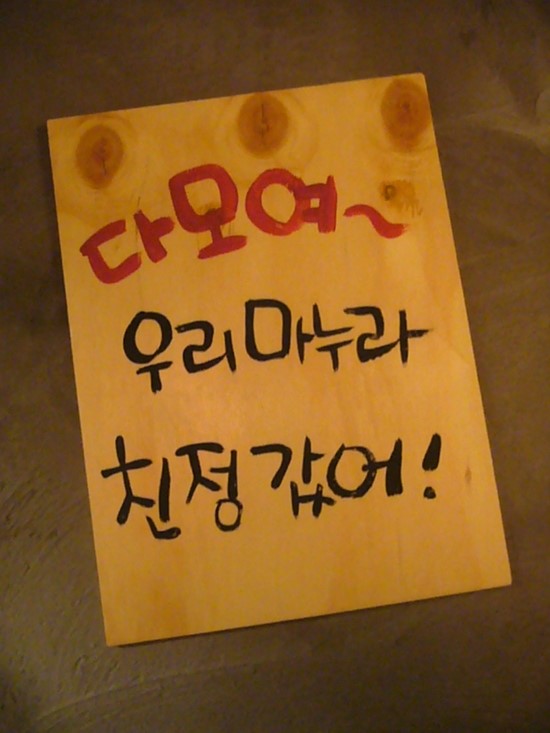 다모여~
우리마누라
친정갔어!